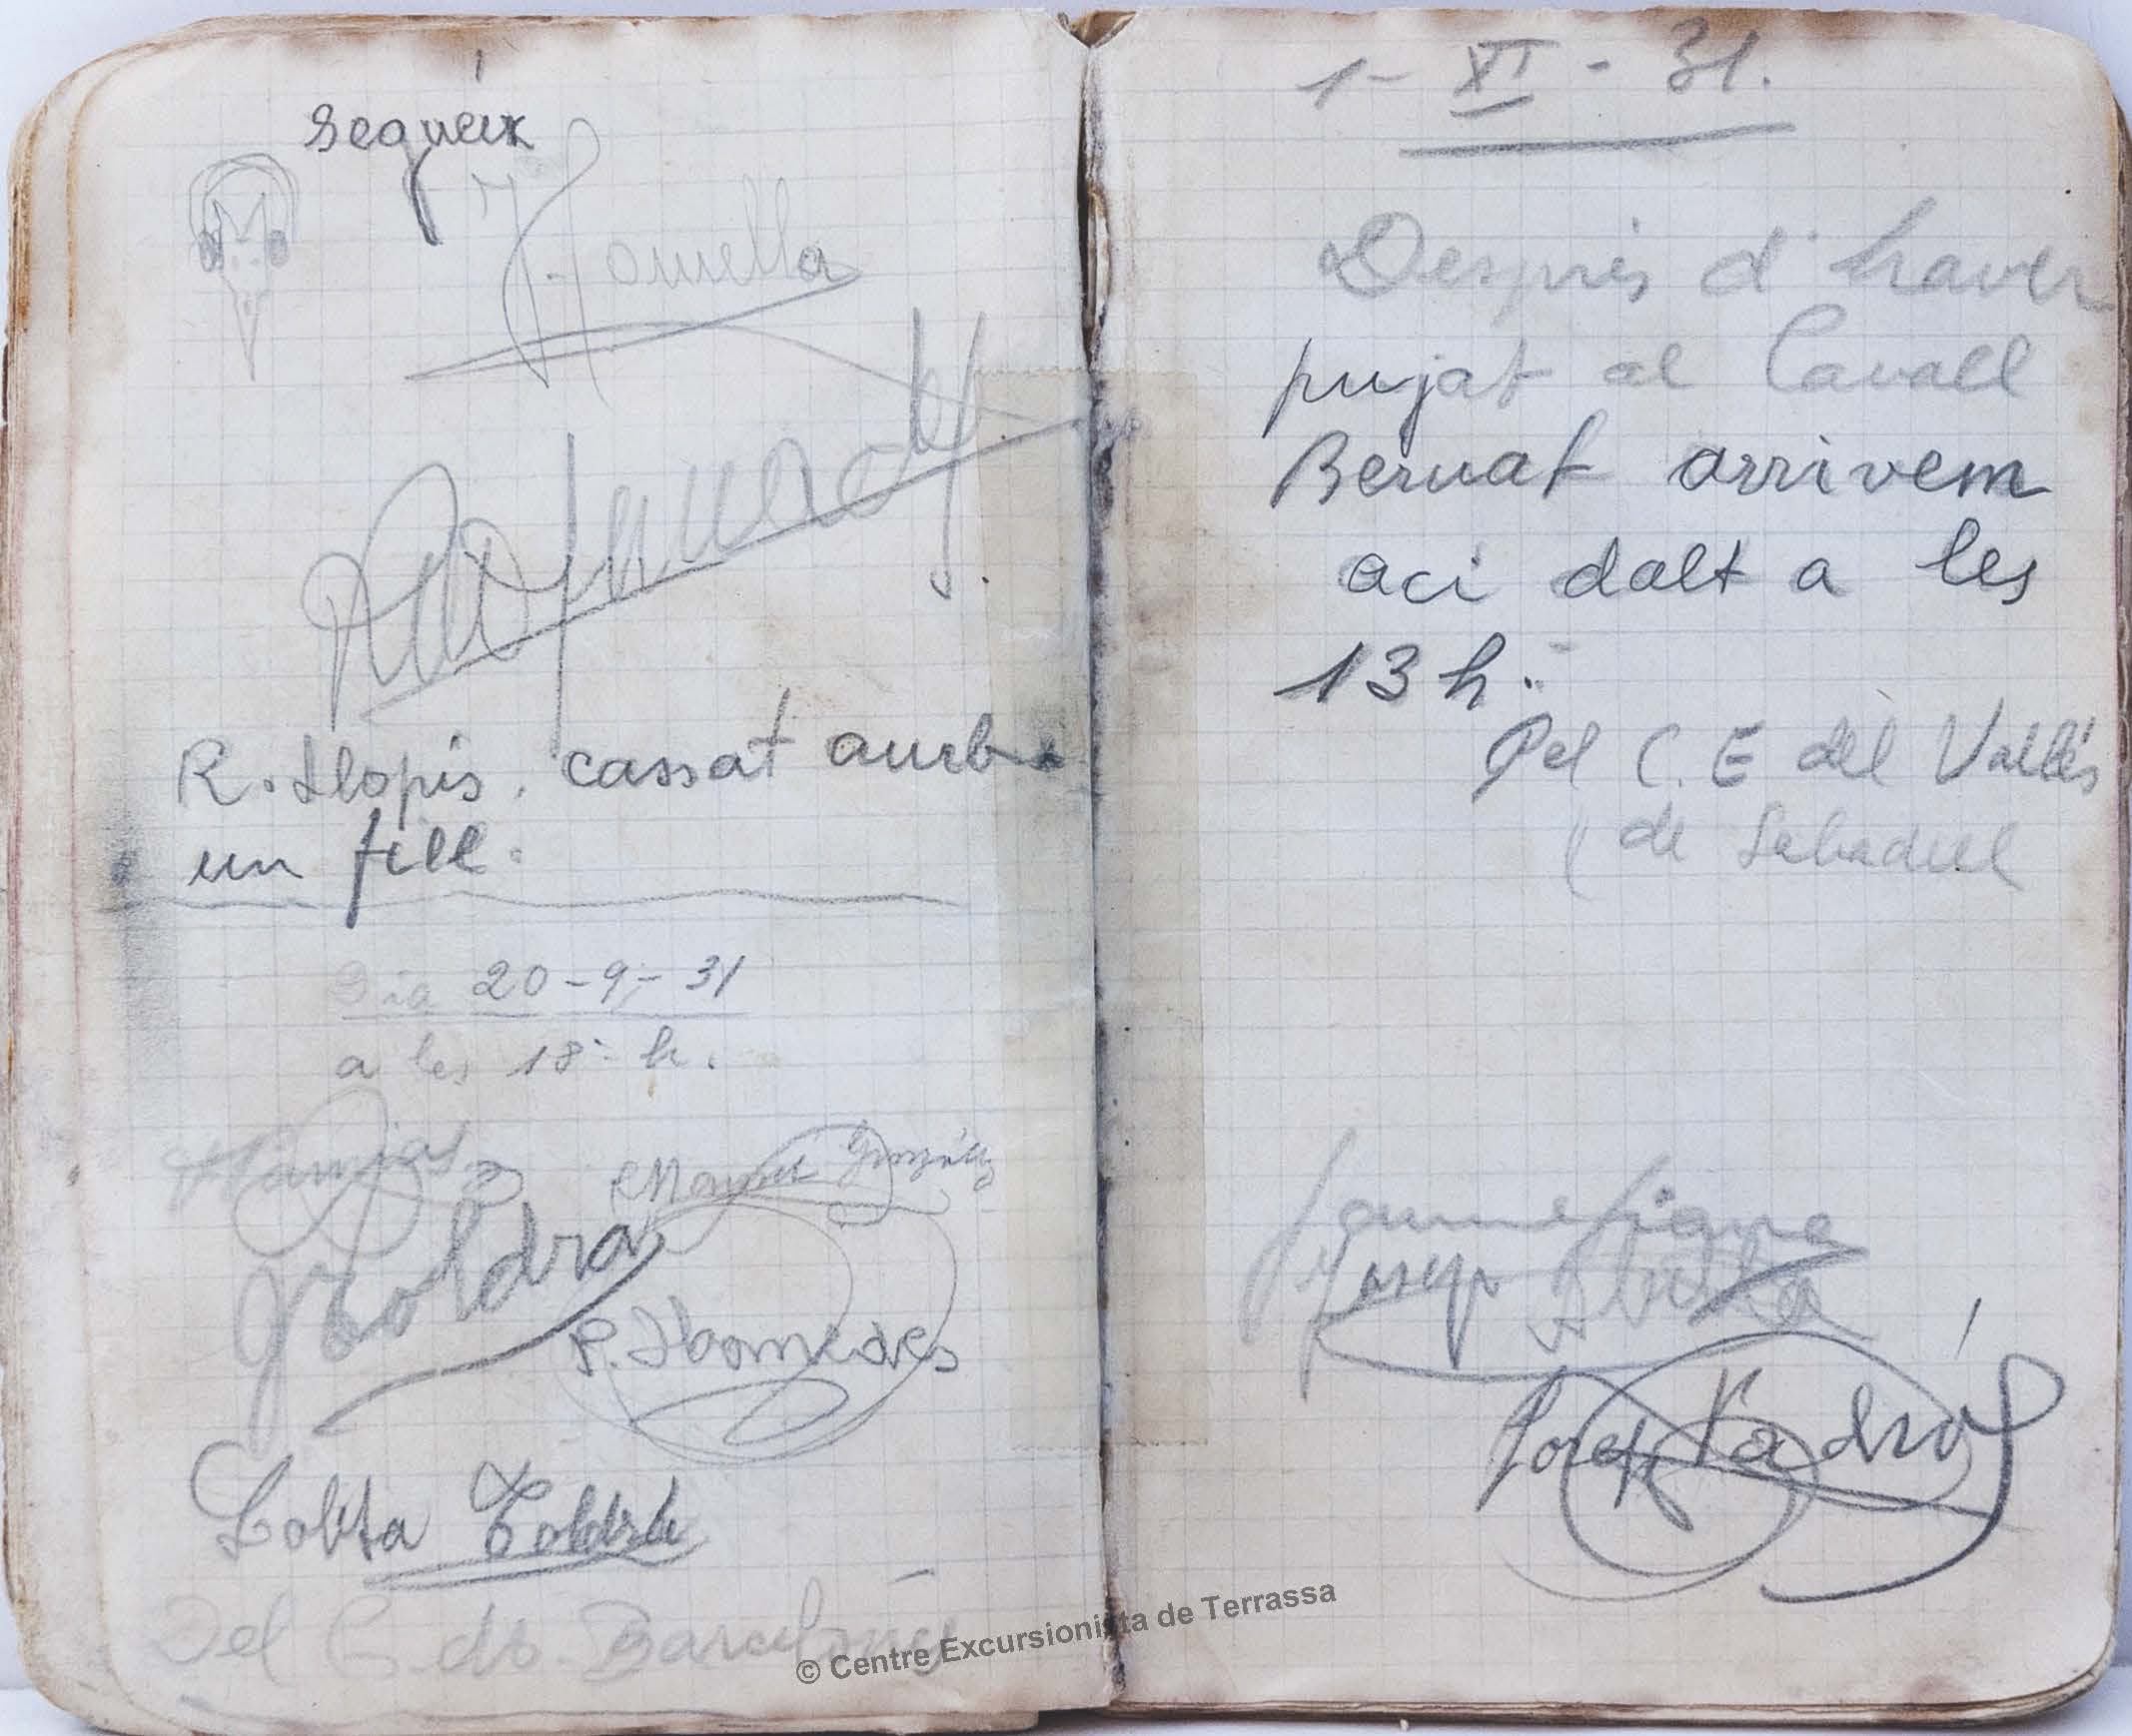 segueix
R. Llopis, cassat amb
un fill.
Dia 20-9-31
a les 18 h.
Toldra
P. Homedes
Lolita Toldrà
Del C. de Barcelona
1-XI-31.
Desprès d'haver
pujat al Cavall
Bernat arrivem
aci dalt a les
13 h.
Pel C. E del Vallés
de Sabadell
Jaume
Josep
Josep Padró
© Centre Excursionista de Terrassa